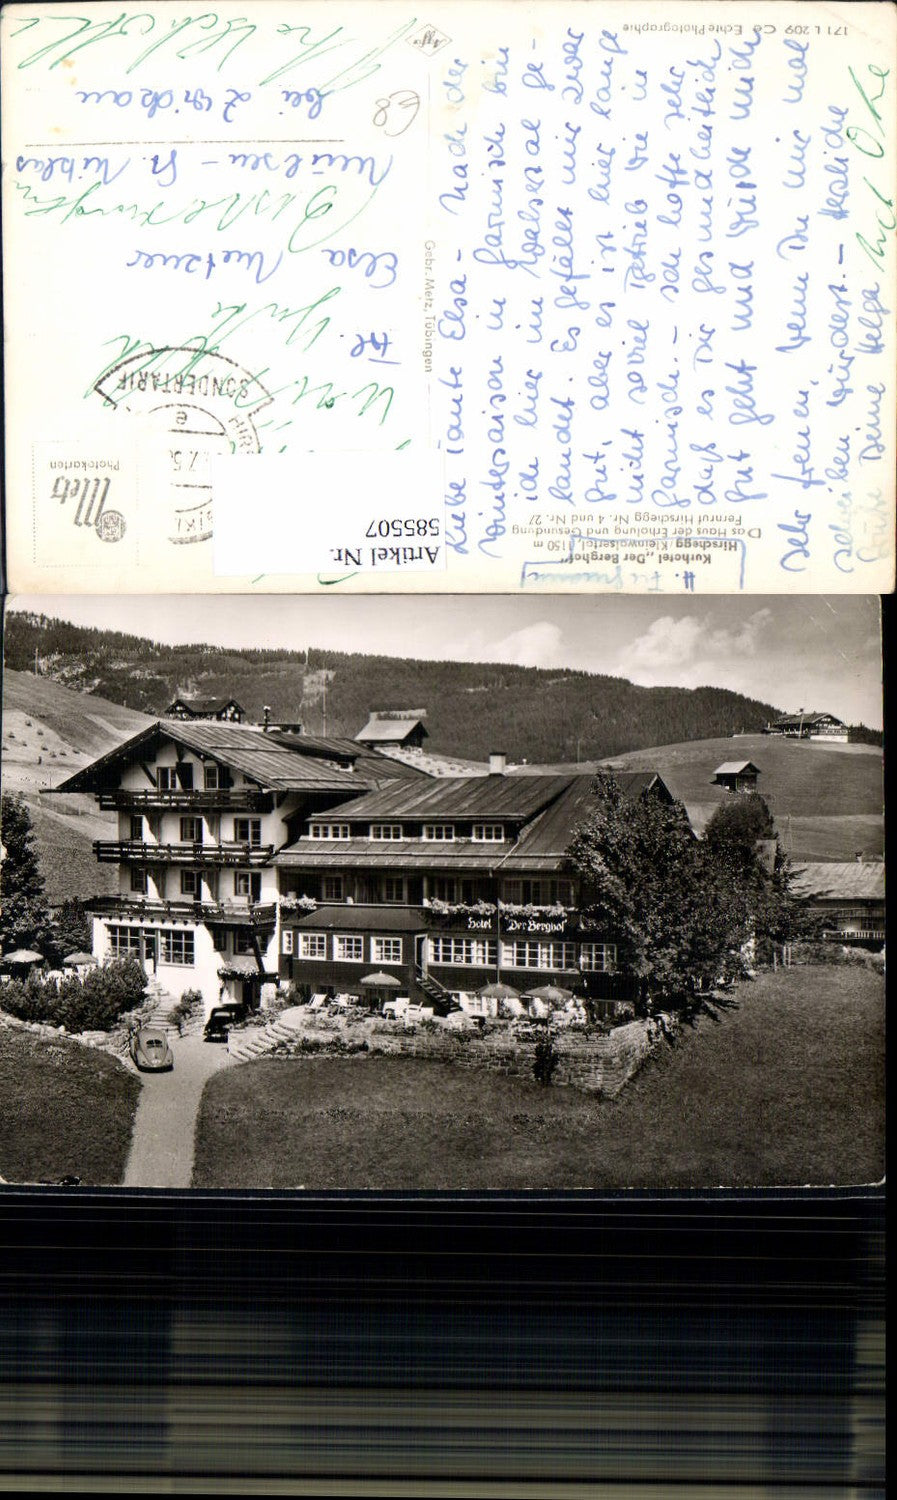 Kurhotel „Der Berghof"
Hirschegg / Kleinwalsertal, 1150 m
Das Haus der Erholung und Gesundung
Fernruf Hirschegg Nr. 4 und Nr. 27
Liebe Tante Elsa - Nach der
Wintersaison in Garmisch bin
ich hier im Walsertal ge-
landet. Es gefällt mir zwar
gut, aber es ist hier lange
nicht soviel Betrieb wie in
Garmisch. - Ich hoffe sehr
daß es Dir gesundheitlich
gut geht und würde mich
sehr freuen, wenn Du mir mal
schreiben würdest. - Herzliche
Grüße Deine Helga
Frl.
Elsa Metzner
Mülsen - St. Niklas
bei Zwickau
Gebr. Metz, Tübingen
Metz
Photokarten
SONDERTARIF
e
Agfa
171 L 209 Cé Echte Photographie
E8
Artikel Nr.
585507
Hotel "Der Berghof"